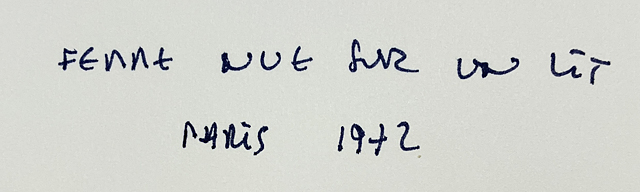 FEMME NUE SUR UN LIT
PARIS 1972